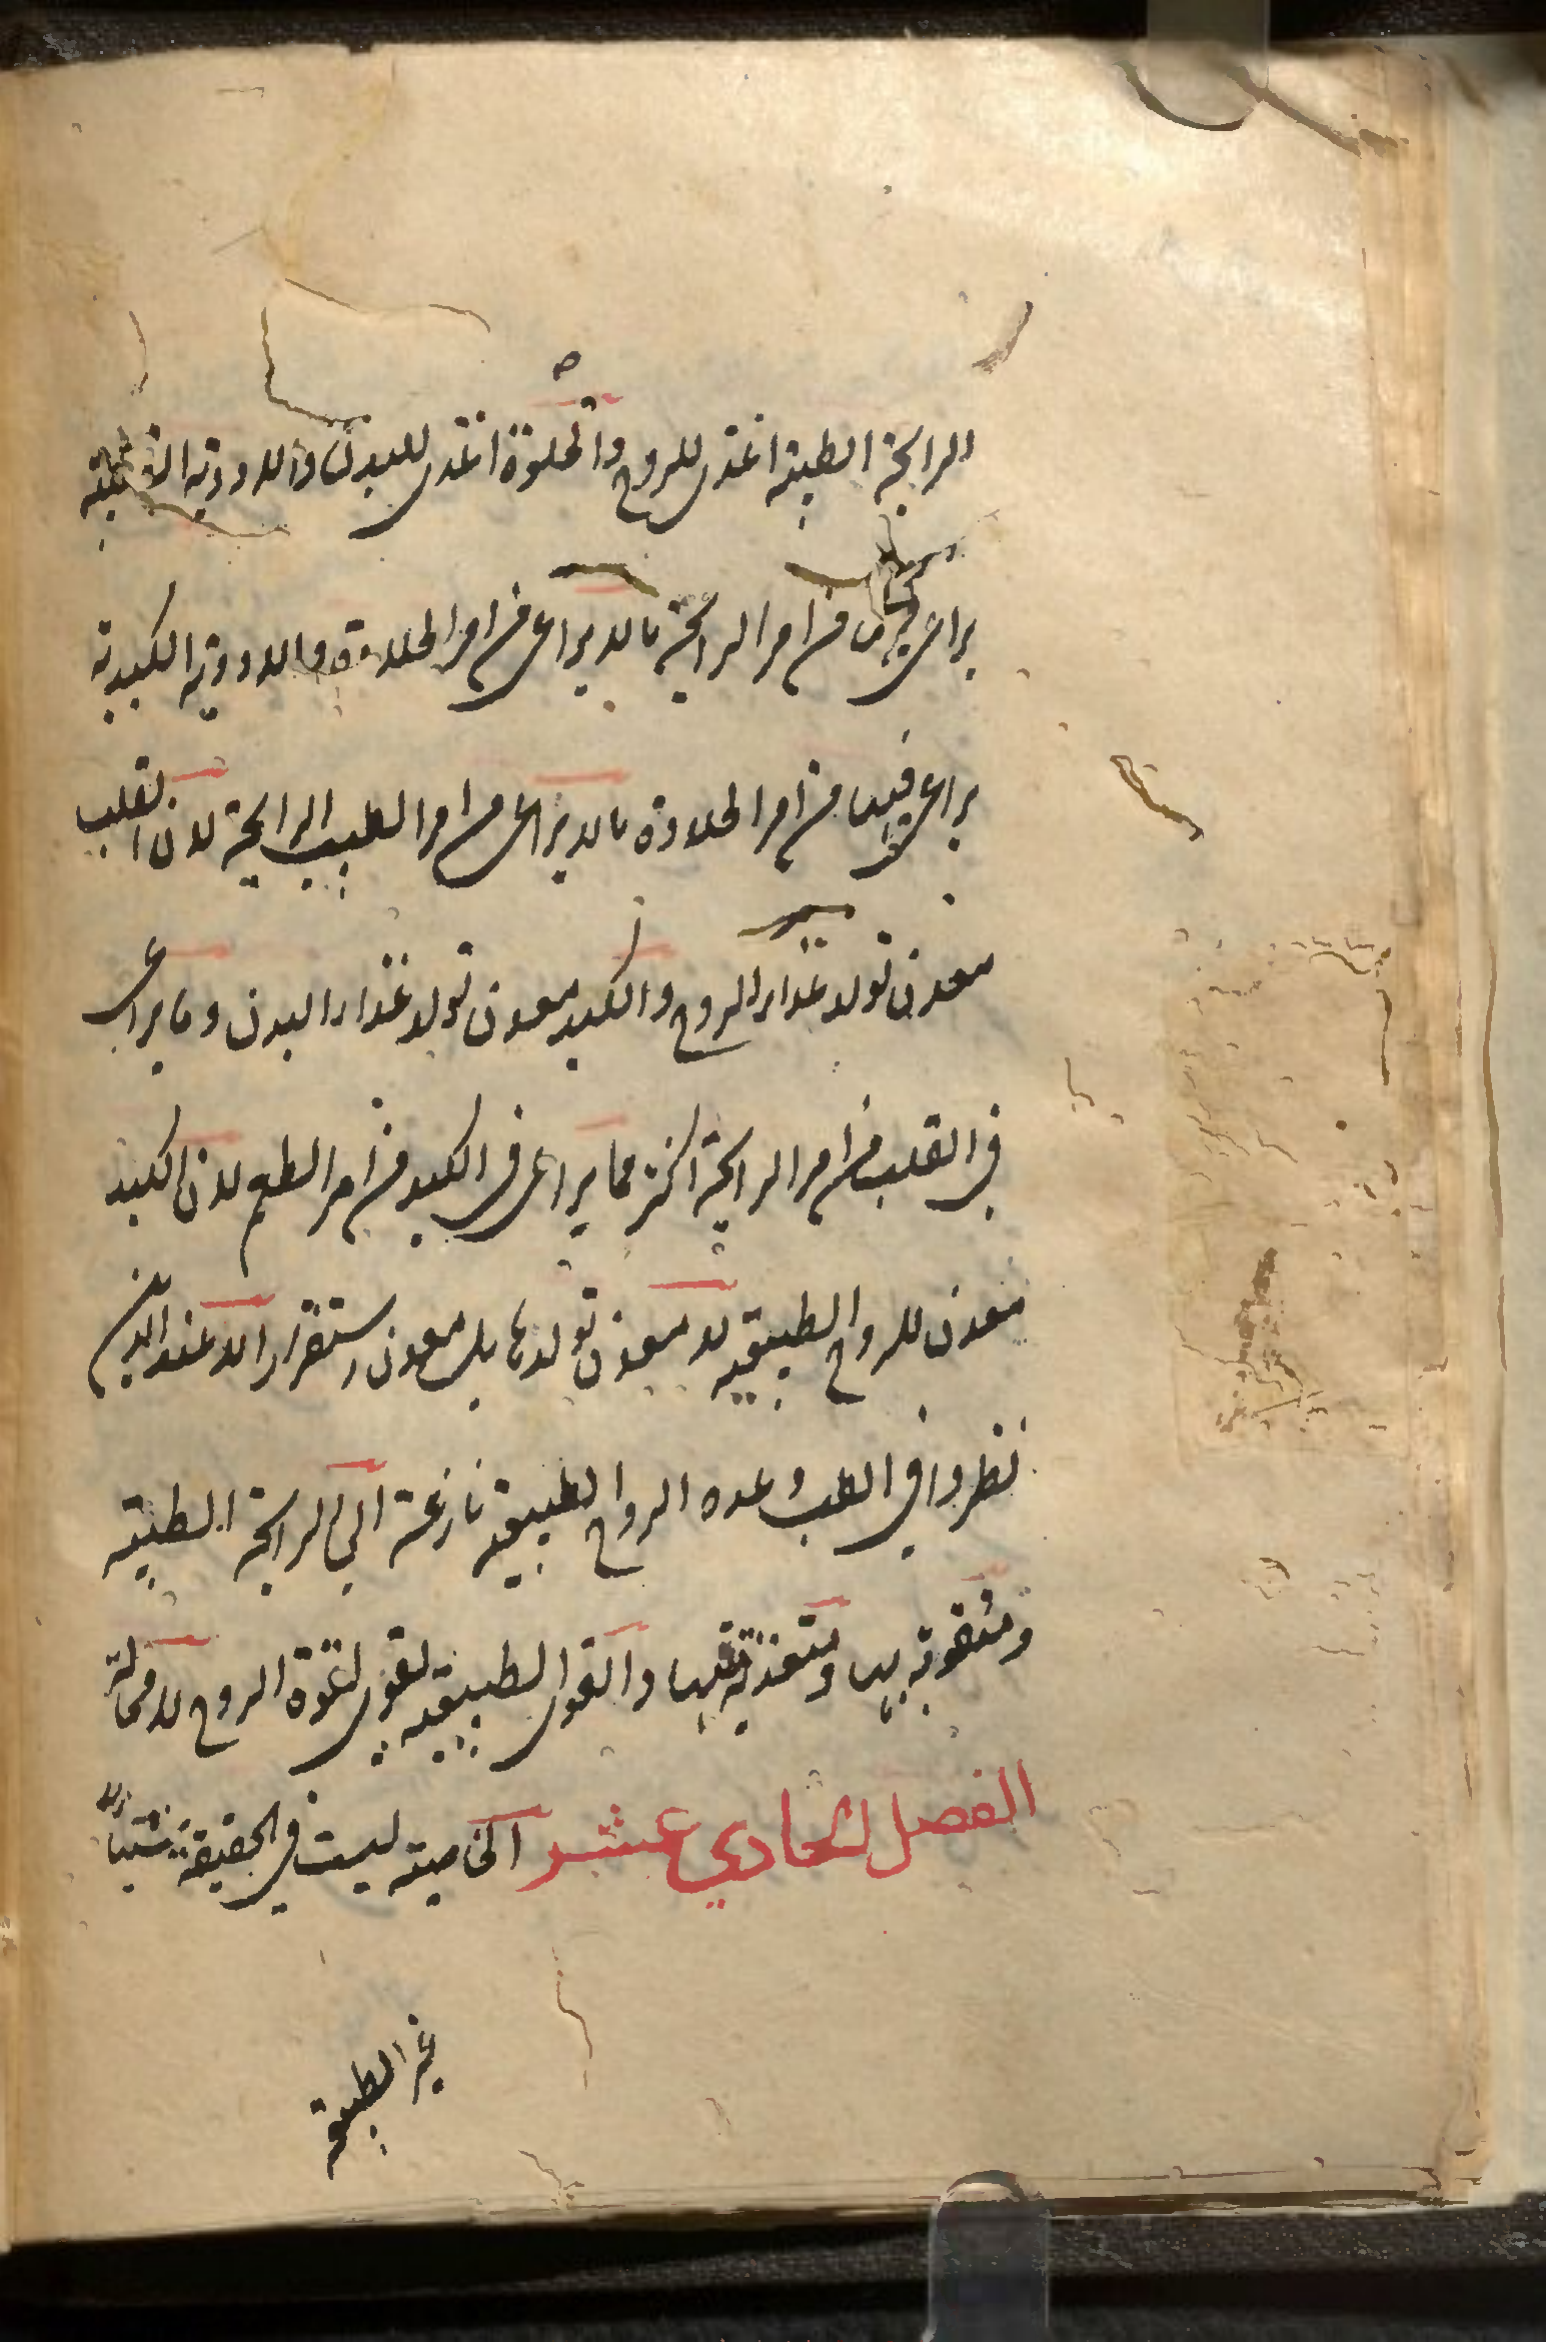 الرايحة الطيبة اغذى للروح والحلاوة اغذى للبدن والادوية القلبية
يراعى فيها من امر الرايحة ما لا يراعى من امر الحلاوة والادوية الكبدية
يراعى فيها من امر الحلاوة ما لا يراعى من امر الطيب الرايحة لان القلب
معدن تولد غذاء الروح والكبد معدن تولد غذاء البدن وما يراعى
فى القلب من امر الرايحة اكثر مما يراعى فى الكبد من امر الطعم لان الكبد
معدن للروح الطبيعية لا معدن تولدها بل معدن استقرارا لا عند الذين
نظروا فى الطب وهذه الروح الطبيعية نازعة الى الرايحة الطيبة
ومتقوية بها ومتغذية بها والقوى الطبيعية تقوى لقوة الروح لا محالة
الفصل الحادي عشر الخاصية ليست فى الحقيقة شيئاً
غير الطبيعة